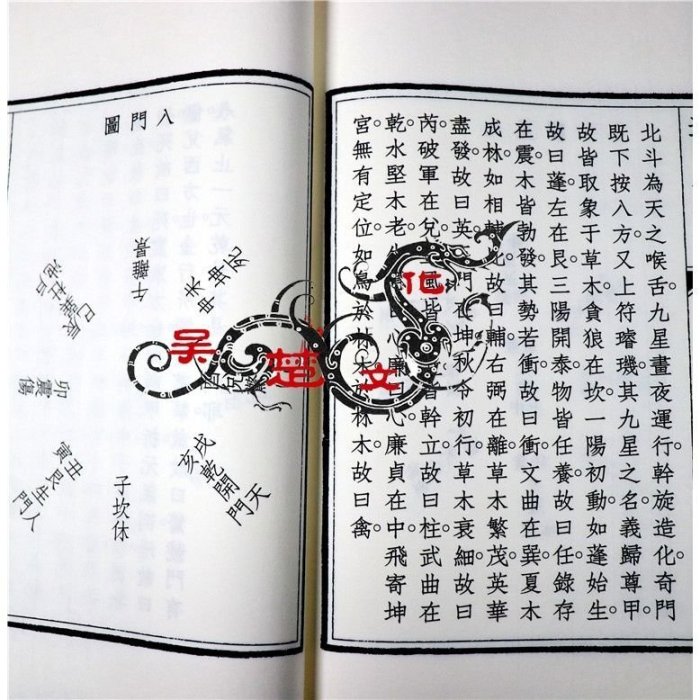 北斗為天之喉舌。九星晝夜運行。斡旋造化。奇門
既下按八方。又上符璿璣。其九星之名義歸尊甲。
故皆取象于草木。貪狼在坎。一陽初動。如蓬始生。
故曰蓬。左在艮。三陽開泰。物皆任養。故曰任。錄存
在震。木皆勃發。其勢若衝。故曰衝。文曲在巽。夏木
成林。如相輔比。故曰輔。右弼在離。草木繁茂。英華
盡發。故曰英。門在坤。秋令初行。草木衰細。故曰
芮。破軍在兌。皆幹立。故曰柱。武曲在
乾。水堅木老。心。廉貞在中。飛寄坤
宮。無有定位。如鳥於林木。故曰禽
八門圖
午離景
未坤申死
巳辰巽杜
卯震傷
寅丑艮生門人
子坎休
亥戌乾開門天
吳楚文化